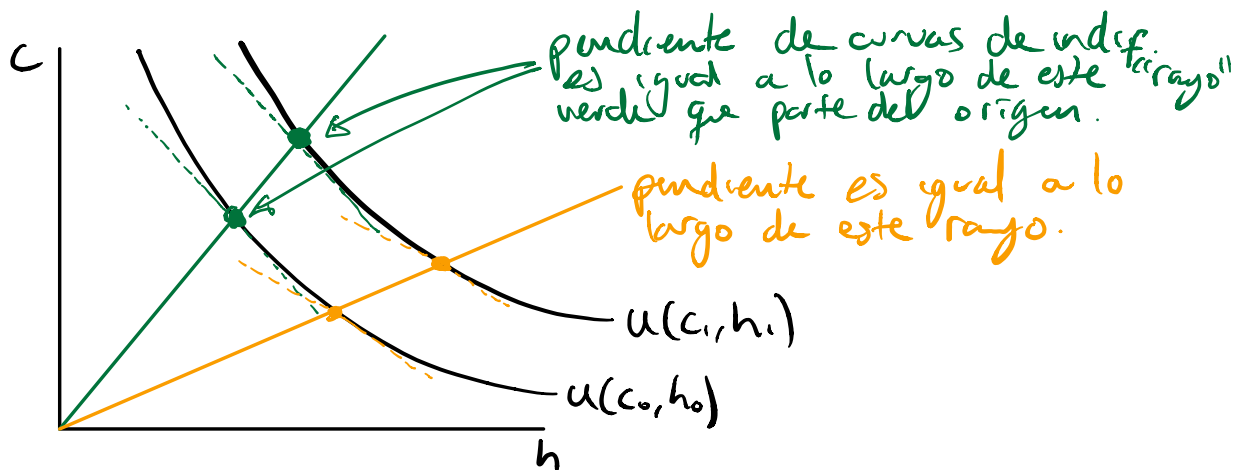 c
pendiente de curvas de indif.
es igual a lo largo de este "rayo"
verde que parte del origen.
pendiente es igual a lo
largo de este rayo.
u(c₁,h₁)
u(c₀,h₀)
h